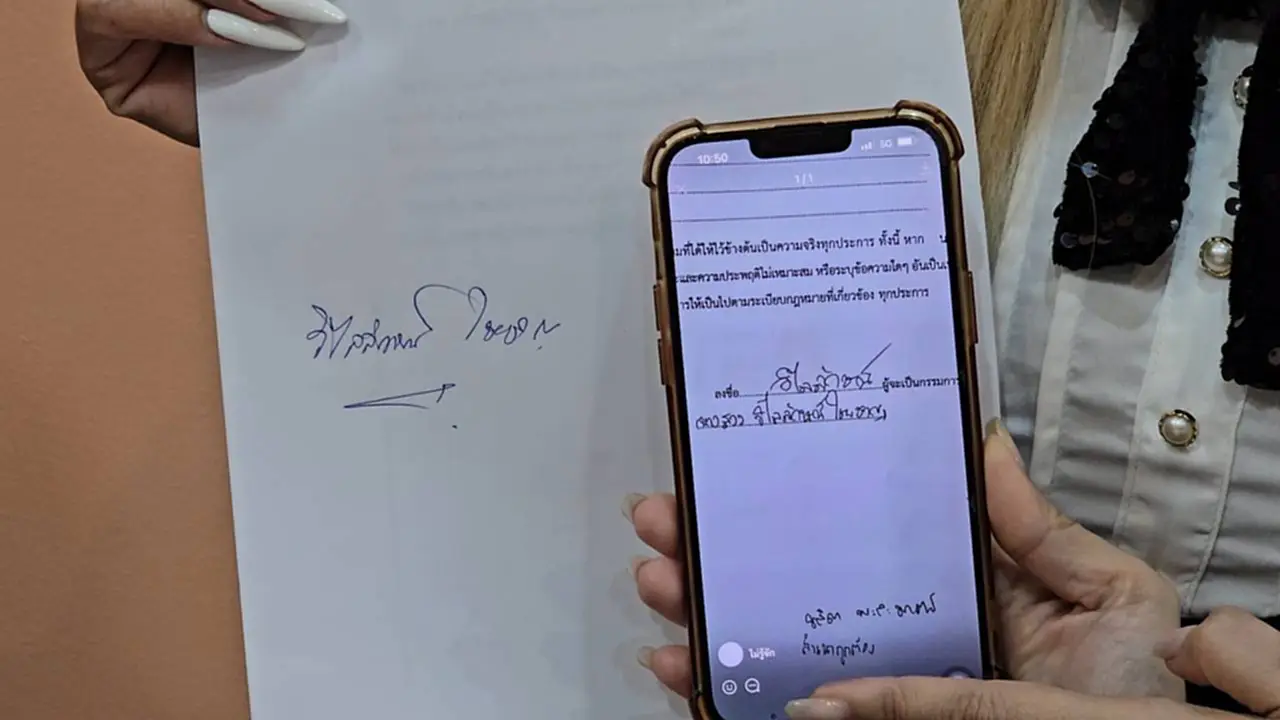 วิไลลักษณ์ ไชยชาญ
10:50
5G
1/1
มที่ได้ให้ไว้ข้างต้นเป็นความจริงทุกประการ ทั้งนี้ หาก น
ะและความประพฤติไม่เหมาะสม หรือระบุข้อความใดๆ อันเป็นเ
ารให้เป็นไปตามระเบียบกฎหมายที่เกี่ยวข้อง ทุกประการ
ลงชื่อ วิไลลักษณ์ ผู้จะเป็นกรรมการ
วิไลลักษณ์ ไชยชาญ
สำเนาถูกต้อง
ไม่รู้จัก